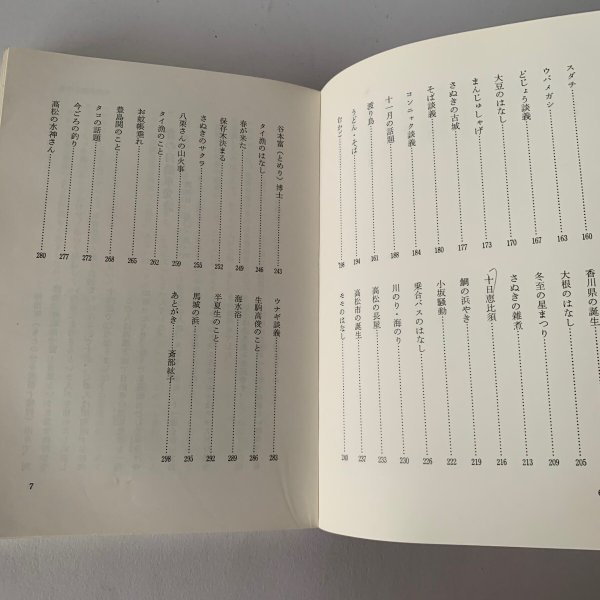 スダチ……160
ウバメガシ……163
どじょう談義……167
大豆のはなし……170
まんじゅしゃげ……173
さぬきの古城……177
そば談義……180
コンニャク談義……184
十一月の話題……188
渡り鳥……191
うどん・そば……194
198
香川県の誕生……205
大根のはなし……209
冬至の星まつり……213
さぬきの雑煮……216
十日恵比須……219
鯛の浜やき……222
小坂騒動……226
乗合バスのはなし……230
川のり・海のり……233
高松の長屋……235
高松市の誕生……237
モモのはなし……240
6
谷本富（とめり）博士……243
タイ漁のはなし……246
春が来た……249
保存木決まる……252
さぬきのサクラ……255
八栗さんの山火事……259
タイ漁のこと……262
お蚊帳垂れ……265
豊島閘のこと……268
タコの話題……272
今ごろの釣り……277
高松の水神さん……280
ウナギ談義……283
生駒高俊のこと……286
海水浴……289
半夏生のこと……292
馬城の浜……295
あとがき……斎部紋子……298
7